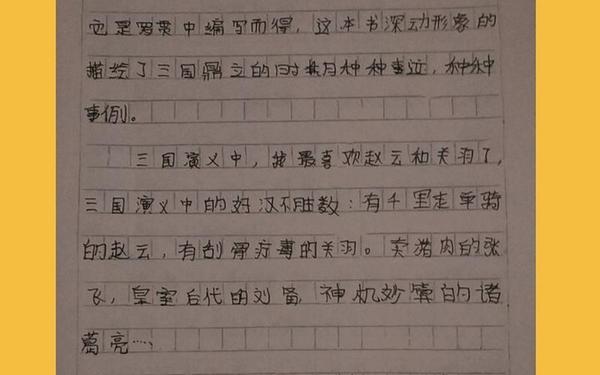 它是罗贯中编写而得，这本书深动形象的
描绘了三国鼎立的时期种种事迹，种种
事例。
三国演义中，我最喜欢赵云和关羽了，
三国演义中的好汉不胜数：有千里走单骑
的赵云，有刮骨疗毒的关羽。卖猪肉的张
飞，皇室后代的刘备，神机妙算的诸
葛亮……